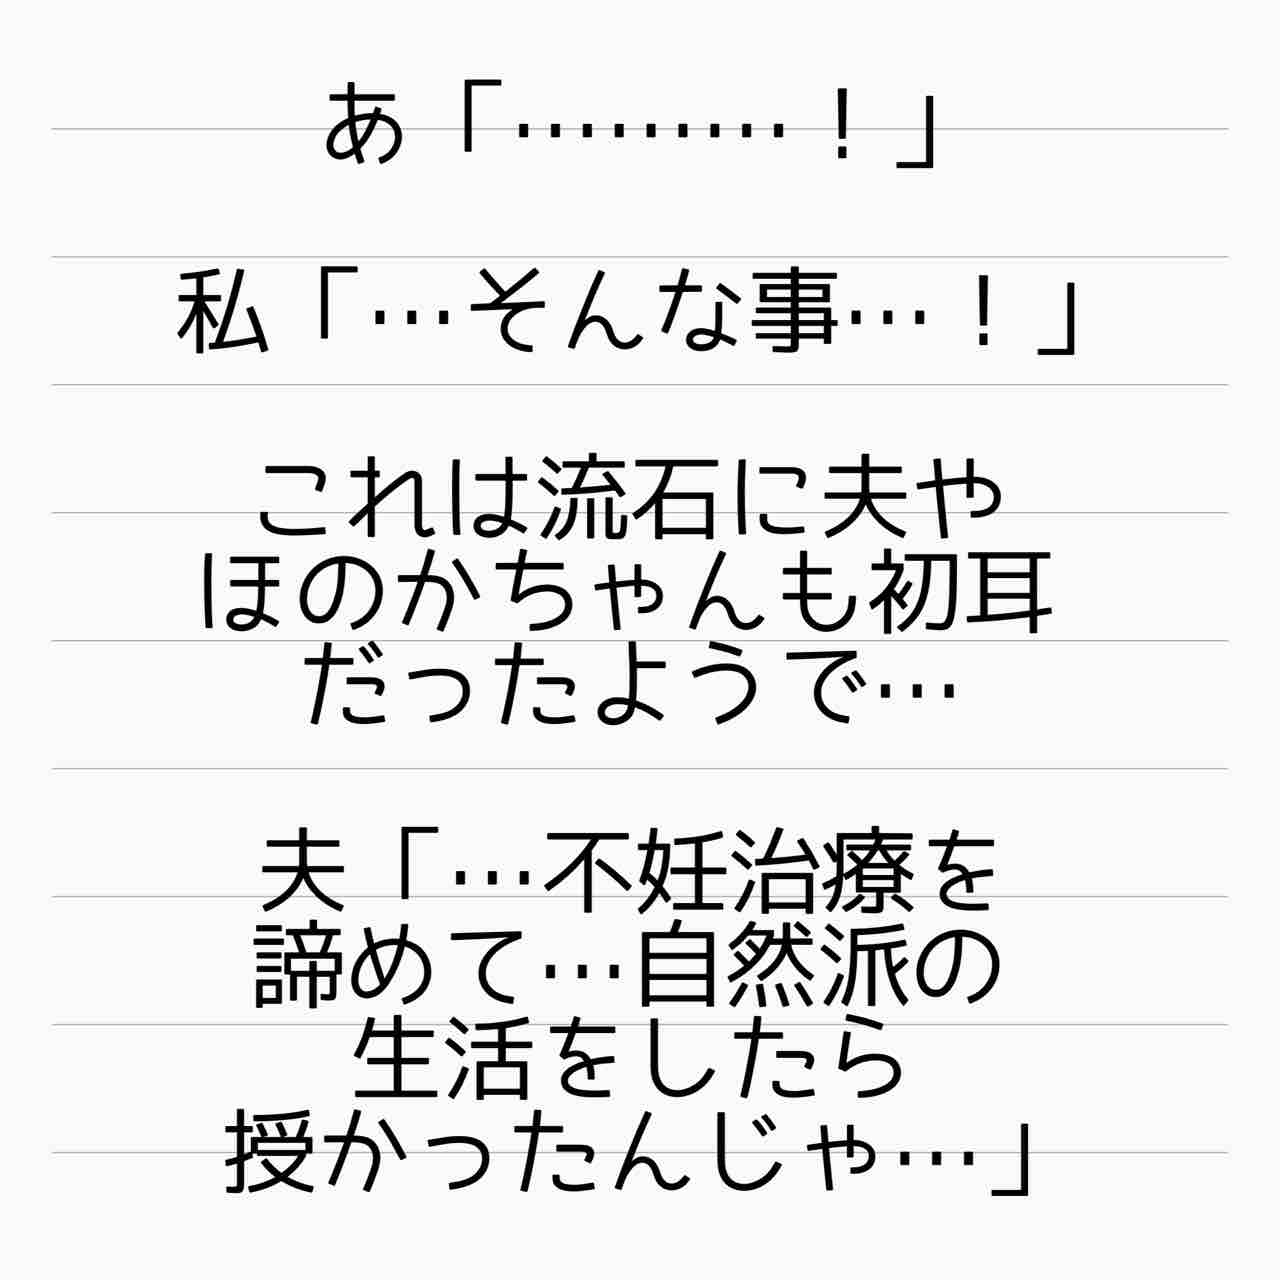 あ「………！」
私「…そんな事…！」
これは流石に夫や
ほのかちゃんも初耳
だったようで…
夫「…不妊治療を
諦めて…自然派の
生活をしたら
授かったんじゃ…」